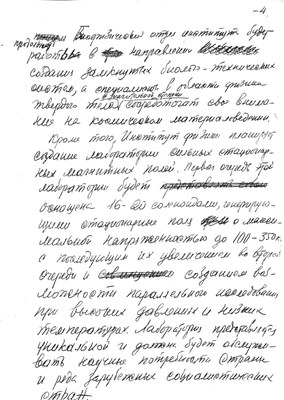 -4
Биофизический отдел института будет
продолжать работы в направлении
создания замкнутых биолого-технических
систем, а специалисты в области физики
твердого тела сосредоточат свое внима-
ние на космическом материаловедении.
Кроме того, Институт физики планирует
создание лаборатории сильных стационар-
ных магнитных полей. Первая очередь этой
лаборатории будет
оснащена 16-20 соленоидами,
щими стационарные поля с макси-
мальной напряженностью до 100-350 к.
с последующим их увеличением во второй
очереди и созданием воз-
можности параллельного исследования
при высоких давлениях и низких
температурах. Лаборатория представляется
уникальной и должна будет обслужи-
вать научные потребности страны
и ряда зарубежных социалистических
стран.